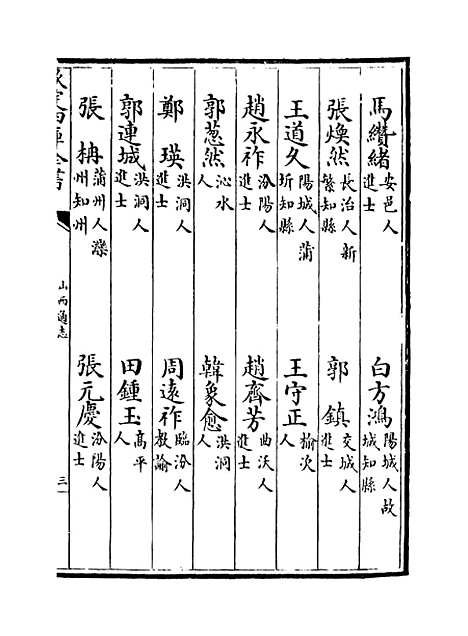 馬纘緒 安邑人進士 白方鴻 陽城人故城知縣
張煥然 長治人新繁知縣 郭鎮 交城人進士
王道久 陽城人蒲圻知縣 王守正 榆次人
趙永祚 汾陽人進士 趙齊芳 曲沃人進士
郭蔥然 沁水人 韓象愈 洪洞人
鄭瑛 洪洞人進士 周遠祚 臨汾人教諭
郭連城 洪洞人進士 田鍾玉 高平人
張枬 蒲州人灤州知州 張元慶 汾陽人進士
欽定四庫全書 山西通志 三一